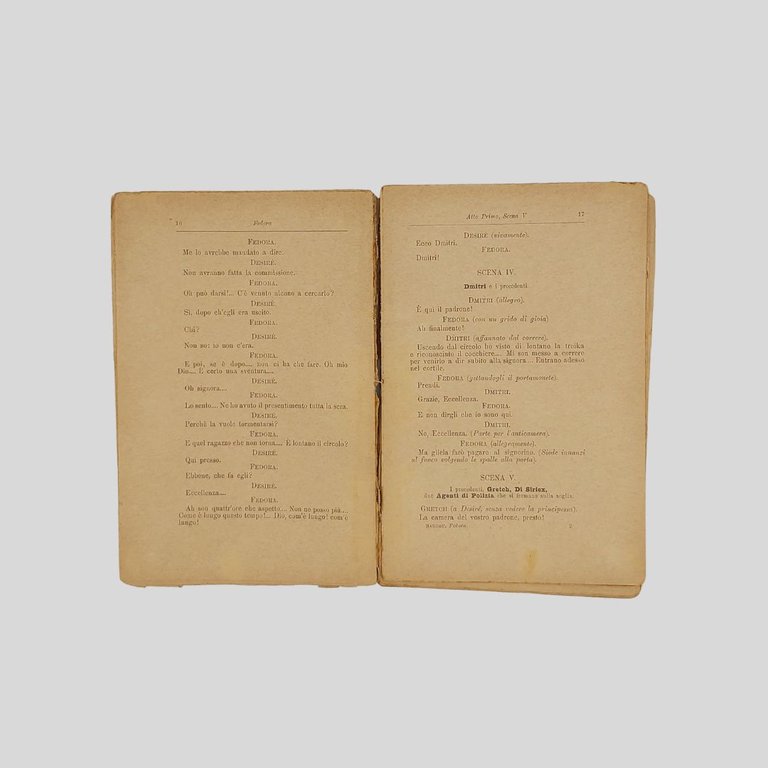 16 Fedora
FEDORA.
Me lo avrebbe mandato a dire.
DESIRÉ.
Non avranno fatta la commissione.
FEDORA.
Oh può darsi!... C'è venuto alcuno a cercarlo?
DESIRÉ.
Sì, dopo ch'egli era uscito.
FEDORA.
Chi?
DESIRÉ.
Non so: io non c'era.
FEDORA.
E poi, se è dopo.... non ci ha che fare. Oh mio
Dio.... È certo una sventura....
DESIRÉ.
Oh signora....
FEDORA.
Lo sento.... Ne ho avuto il presentimento tutta la sera.
DESIRÉ.
Perchè la vuole tormentarsi?
FEDORA.
E quel ragazzo che non torna.... È lontano il circolo?
DESIRÉ.
Qui presso.
FEDORA.
Ebbene, che fa egli?
DESIRÉ.
Eccellenza....
FEDORA.
Ah son quattr'ore che aspetto.... Non ne posso più....
Come è lungo questo tempo!... Dio, com'è lungo! com'è
lungo!
Atto Primo, Scena V 17
DESIRÉ (vivamente).
Ecco Dmitri.
FEDORA.
Dmitri!
SCENA IV.
Dmitri e i precedenti.
DMITRI (allegro).
È qui il padrone!
FEDORA (con un grido di gioia)
Ah finalmente!
DMITRI (affannato dal correre).
Uscendo dal circolo ho visto di lontano la troïka
e riconosciuto il cocchiere.... Mi son messo a correre
per venirlo a dir subito alla signora... Entrano adesso
nel cortile.
FEDORA (gittandogli il portamonete).
Prendi.
DMITRI.
Grazie, Eccellenza.
FEDORA.
E non dirgli che io sono qui.
DMITRI.
No, Eccellenza. (Parte per l'anticamera).
FEDORA (allegramente).
Ma gliela farò pagare al signorino. (Siede innanzi
al fuoco volgendo le spalle alla porta).
SCENA V.
I precedenti, Gretch, De Siriex,
due Agenti di Polizia che si fermano sulla soglia.
GRETCH (a Desiré, senza vedere la principessa).
La camera del vostro padrone, presto!
SARDOU, Fedora. 2